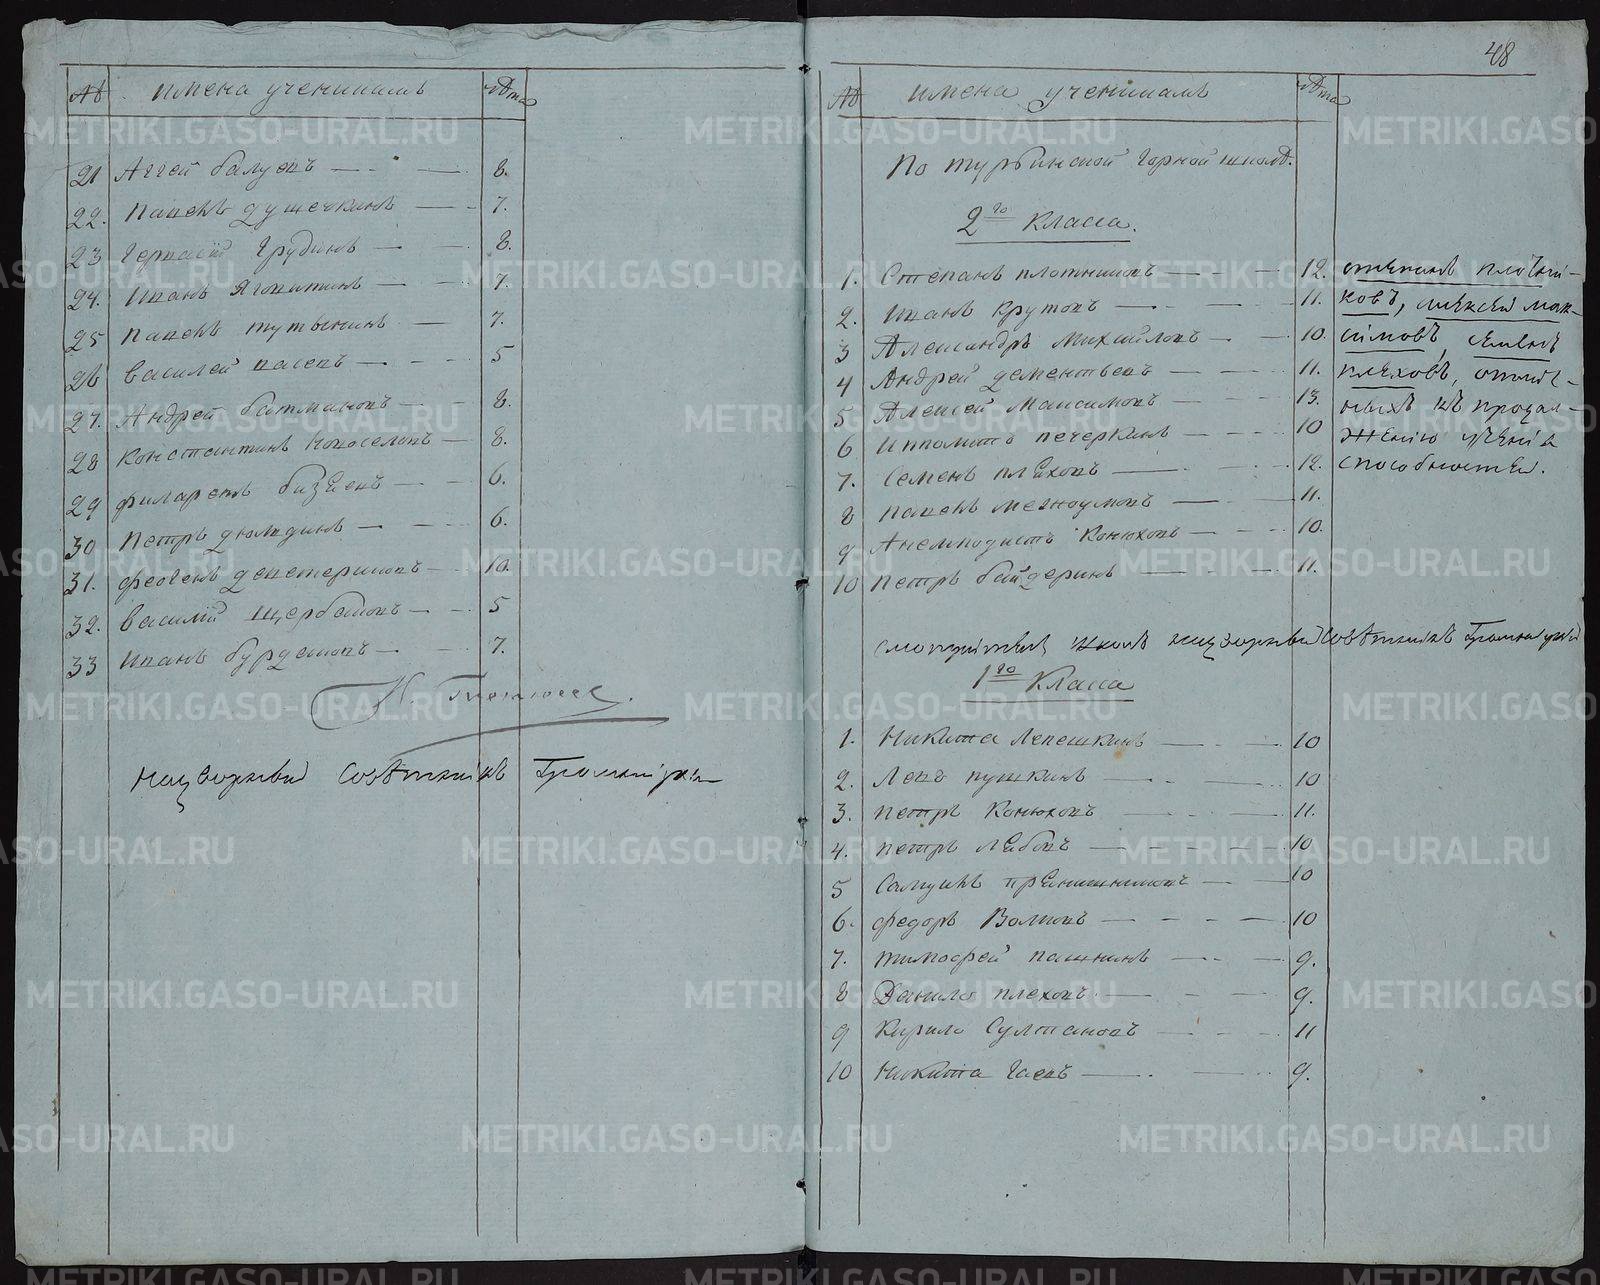 48
№ имена учениковъ лѣта
21 Аггей балуевъ 8.
22. Павелъ душечкинъ 7.
23 Гервасій Грудинъ 8.
24. Иванъ Яговитинъ 7.
25 Павелъ тутынинъ 7.
26 василей васевъ 5
27. Андрей батмановъ 8.
28 Константинъ новоселовъ 8.
29 филаретъ бизяевъ 6.
30 Петръ дюлдинъ 6.
31. 10.
32. василій щербаковъ 5
33 Иванъ бурдаковъ 7.
надворный совѣтникъ
№ имена учениковъ лѣта
По турьинской горной школѣ.
2го класса.
1. Степанъ плотниковъ 12. степанъ плотни-
2. Иванъ Крутовъ 11. ковъ, алексей мак-
3 Александръ михайловъ 10. симовъ, семенъ
4 Андрей дементьевъ 11. плѣховъ,
5 Алексей максимовъ 13. ныхъ къ продол-
6 Ипполитъ печеркинъ 10 женію ученія
7. Семенъ плѣховъ 12. способностей.
8 павелъ мехноумовъ 11.
9 Анемподистъ Конюховъ 10.
10 Петръ байдеринъ 11.
смотритель школъ надворный совѣтникъ
1го класса
1. Никита лепешкинъ 10
2. Левъ пушкинъ 10
3. петръ Конюховъ 11.
4. петръ лябовъ 10
5 Самуилъ прянишниковъ 10
6. федоръ Волковъ 10
7. тимофей пашнинъ 9.
8 Данило плеховъ 9.
9 Кирило Султановъ 11
10 Никита гаевъ 9.
METRIKI.GASO-URAL.RU